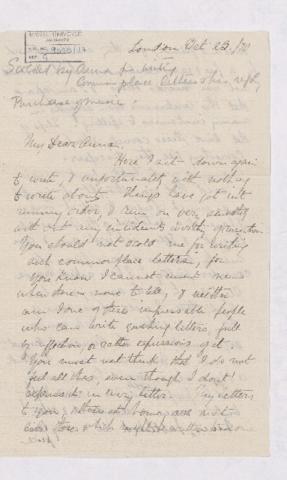 London Oct 23, /70
Scolded by Anna for writing
Common place letters
Purchase of
My Dear Anna,
Here I sit down again
to write, & unfortunately with nothing
to write about. Things have got into
running order, & run on very smoothly
with out any incidents worthy of mention
You should not scold me for writing
such common place letters, for
you know I cannot invent news
when there is none to tell, & neither
am I one of those people
who can write gushing letters, full
of affection or rather expressions of it.
You must not think that I do not
feel all this, even though I don't
express it in every letter. My letters
to you, & those at home, are not